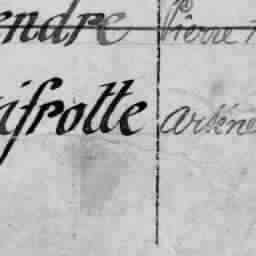 endre Pierre
ifrotte Arsène